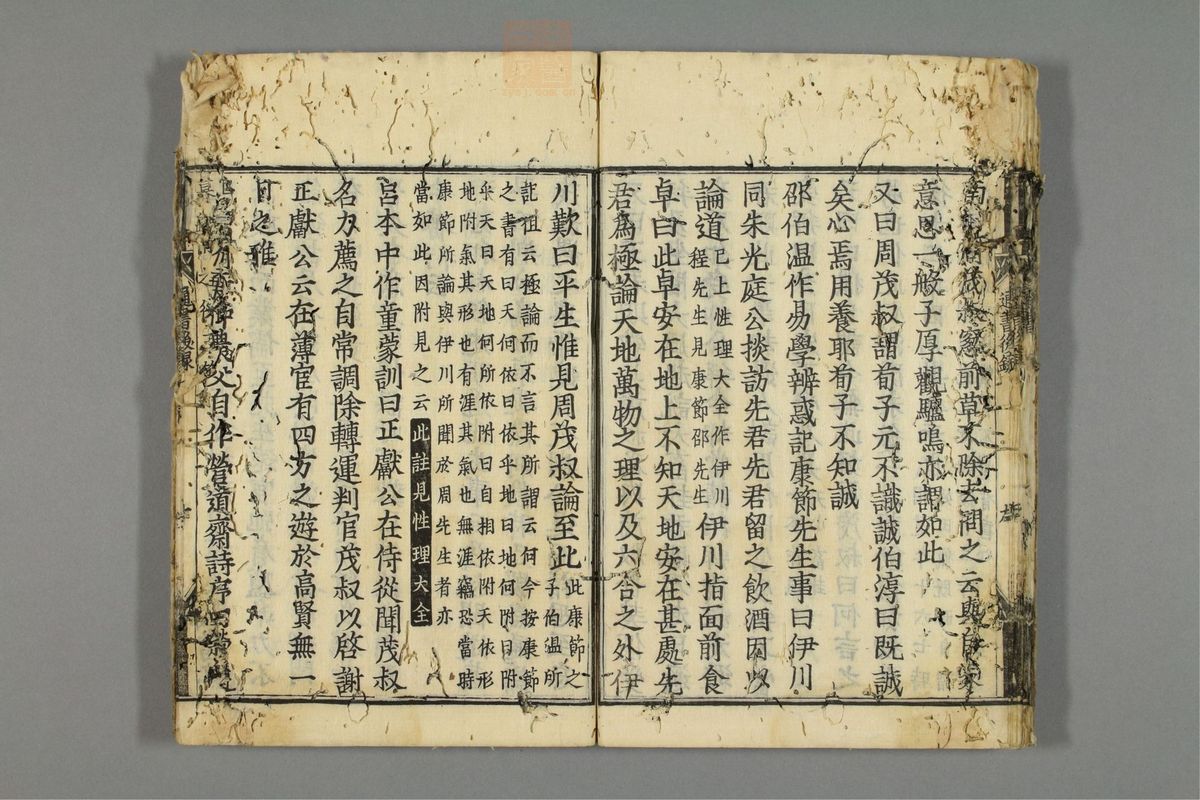 周茂叔窓前草不除去問之云與自家
意思一般子厚觀驢鳴亦謂如此
又曰周茂叔謂荀子元不識誠伯淳曰旣誠
矣心焉用養耶荀子不知誠
邵伯温作易學辨惑記康節先生事曰伊川
同朱光庭公掞訪先君先君留之飮酒因以
論道
已上性理大全作伊川
程先生見康節邵先生
伊川指面前食
卓曰此卓安在地上不知天地安在甚處先
君爲極論天地萬物之理以及六合之外伊
川歎曰平生惟見周茂叔論至此
此康節之
子伯温所
註但云極論而不言其所謂云何今按康節
之書有曰天何依曰依乎地曰地何附曰附
乎天曰天地何所依附曰自相依附天依形
地附氣其形也有涯其氣也無涯竊恐當時
康節所論與伊川所聞於周先生者亦
當如此因附見之云
此註見性理大全
呂本中作童蒙訓曰正獻公在侍從聞茂叔
名力薦之自常調除轉運判官茂叔以啓謝
正獻公云在薄宦有四方之遊於高賢無一
日之雅
父自作營道齋詩序曰營